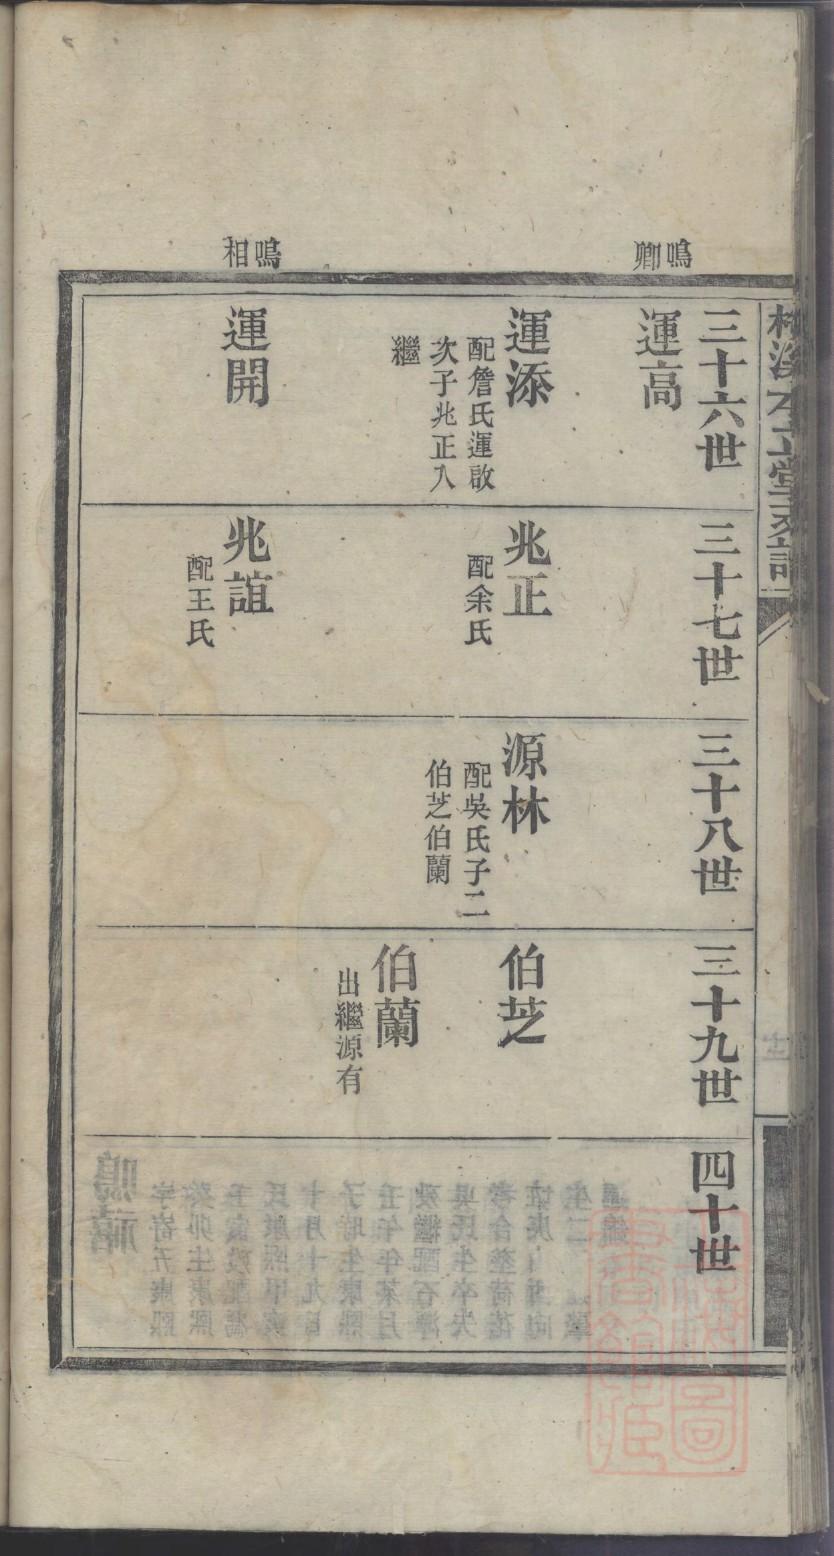 鳴卿
鳴相
三十六世
運高
運添
配詹氏運啟
次子兆正入
繼
運開
三十七世
兆正
配余氏
兆誼
配王氏
三十八世
源林
配吳氏子二
伯芝伯蘭
三十九世
伯芝
伯蘭
出繼源有
四十世